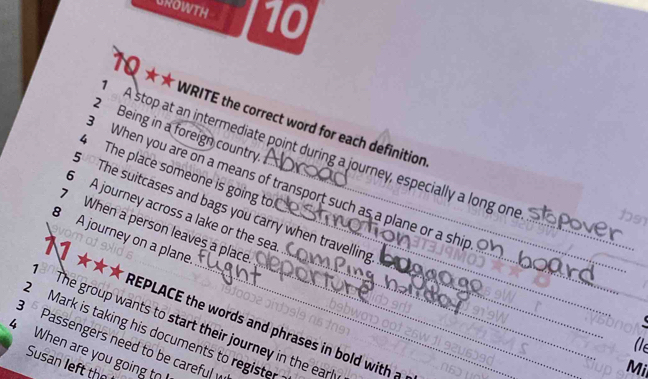 GROWTH
10
10 ★★ WRITE the correct word for each definition.
1 A stop at an intermediate point during a journey, especially a long one. stopover
2 Being in a foreign country. Abroad
3 When you are on a means of transport such as a plane or a ship. on board
4 The place someone is going to destination
5 The suitcases and bags you carry when travelling. baggage
6 A journey across a lake or the sea. camping holiday
7 When a person leaves a place. departure
8 A journey on a plane. flight
11 ★★★ REPLACE the words and phrases in bold with a
1 The group wants to start their journey in the early
2 Mark is taking his documents to register
3 Passengers need to be careful
4 When are you going to
Susan left the
Mi